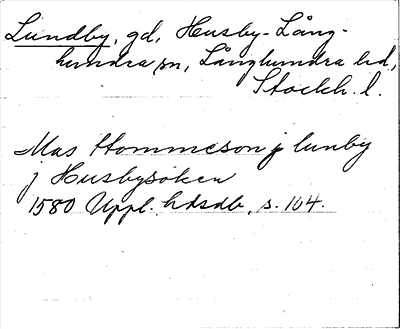 Lundby, gd, Husby-Lång-
hundra sn, Långhundra hd,
Stockh. l.
Mas Hommeson j lunby
j Husbysoken
1580 Uppl. hdsdb, s. 104.